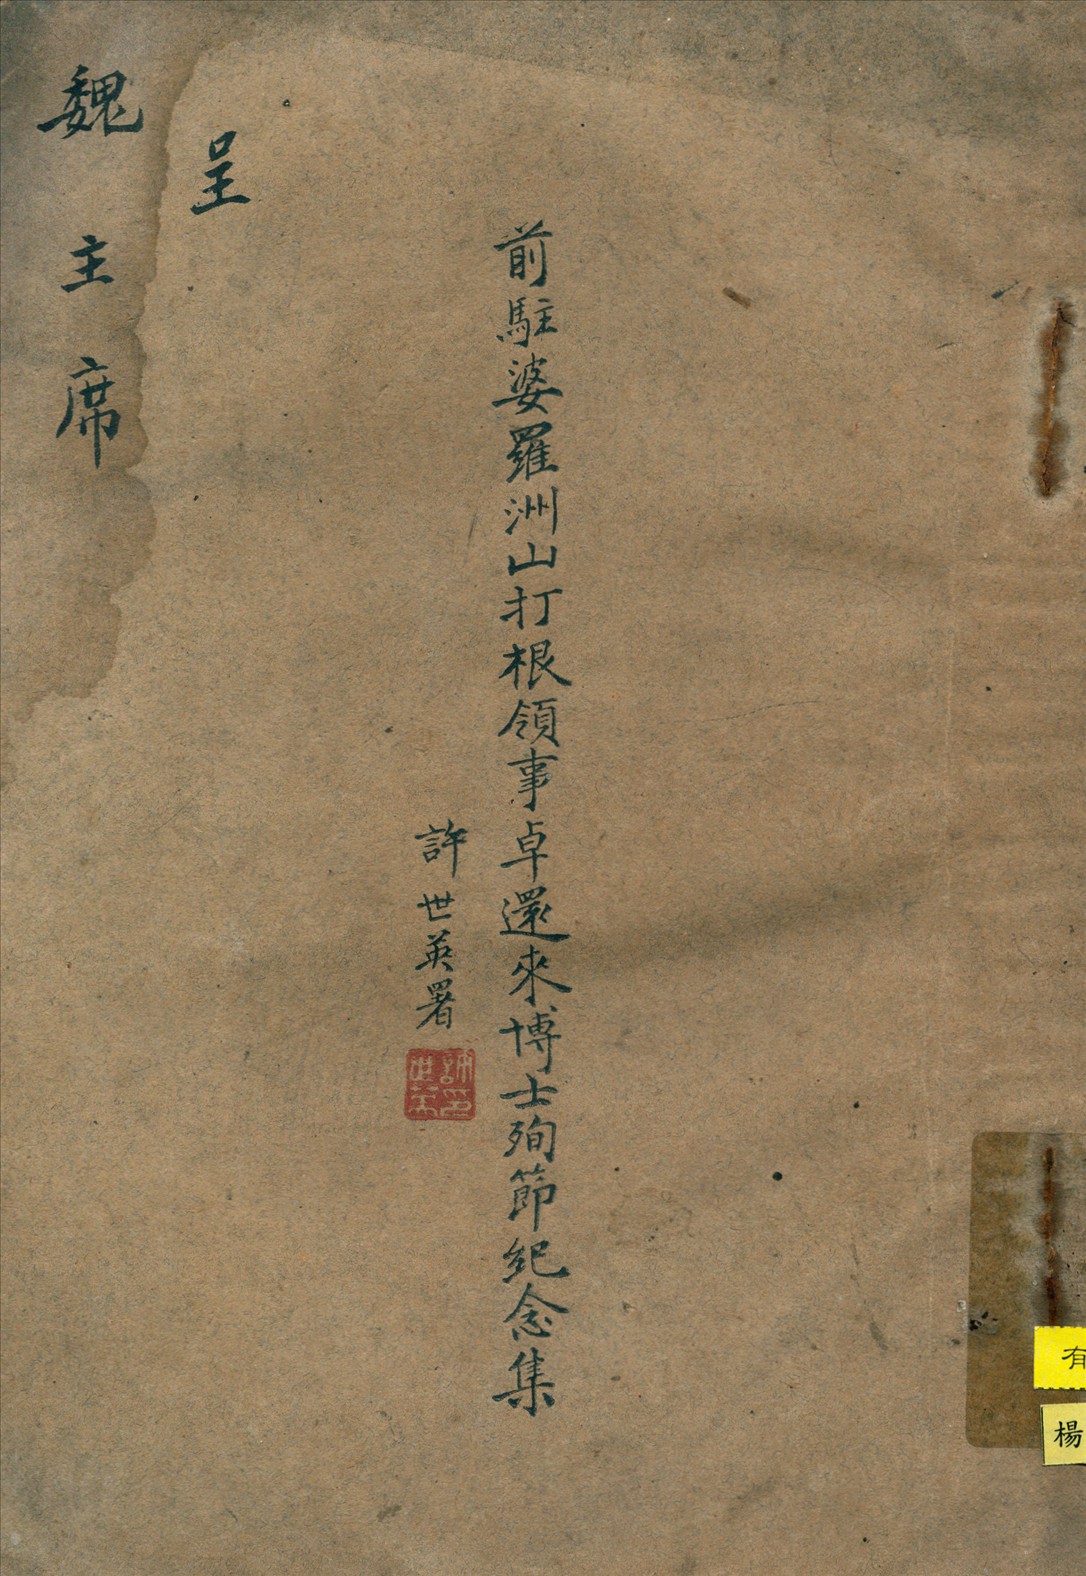 前駐婆羅洲山打根領事卓還來博士殉節紀念集
許世英署
許世英印
呈
魏主席
有
楊